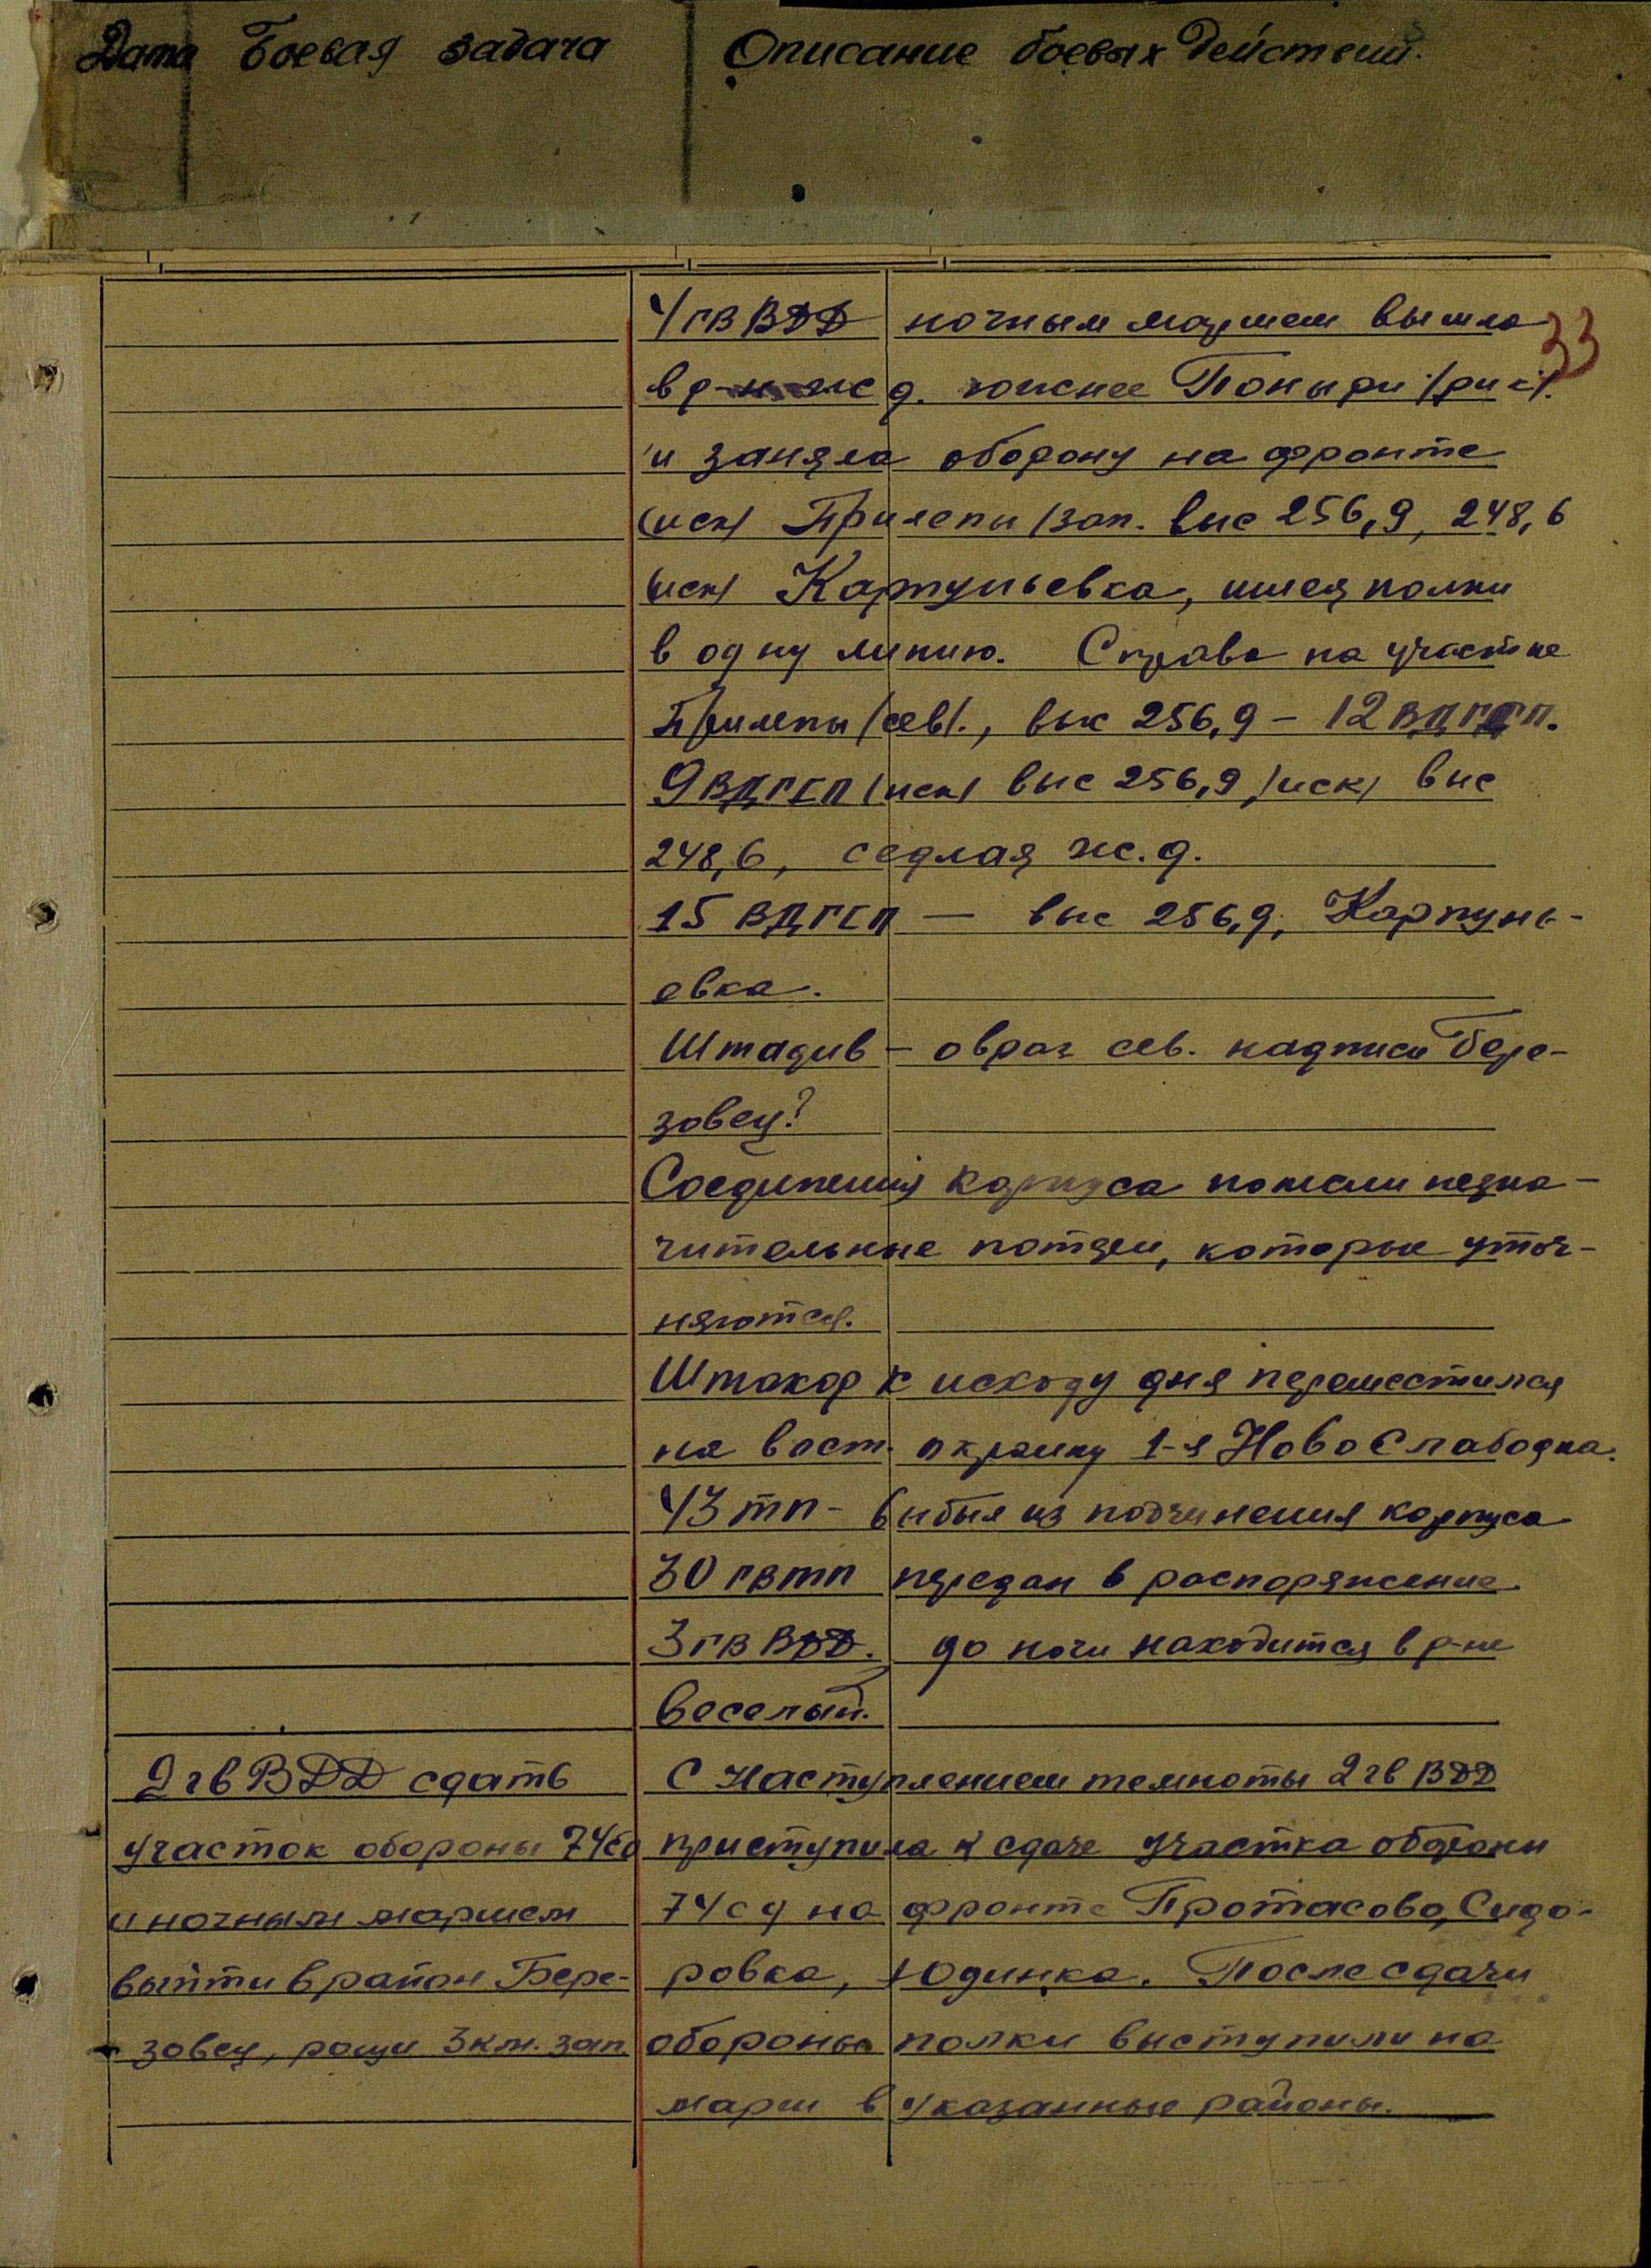 Дата Боевая задача Описание боевых действий.
33
4 гв ВДД ночным маршем вышла
в р-н ж д. южнее Поныри /рик/.
и заняла оборону на фронте
(иск) Прилепы /зап. выс 256,9, 248,6
(иск) Карпуньевка, имея полки
в одну линию. Справа на участке
Прилепы /сев/., выс 256,9 – 12 ВДГСП.
9 ВДГСП (иск) выс 256,9 /иск/ выс
248,6, седлая ж.д.
15 ВДГСП — выс 256,9, Карпунь-
евка.
Штадив – овраг сев. надписи Бере-
зовец?
Соединения корпуса понесли незна-
чительные потери, которые уточ-
няются.
Штакор к исходу дня переместился
на вост. окраину 1-я Ново Слабодка.
43 тп – выбыл из подчинения корпуса
30 гв тп передан в распоряжение
3 гв ВДД. до ночи находится в р-не
Веселый.
2 гв ВДД сдать
участок обороны 74сд
и ночным маршем
выйти в район Бере-
зовец, рощи 3 км. зап
С наступлением темноты 2 гв ВДД
приступила к сдаче участка обороны
74 сд на фронте Протасово, Сидо-
ровка, Юдинка. После сдачи
обороны полки выступили на
марш в указанные районы.